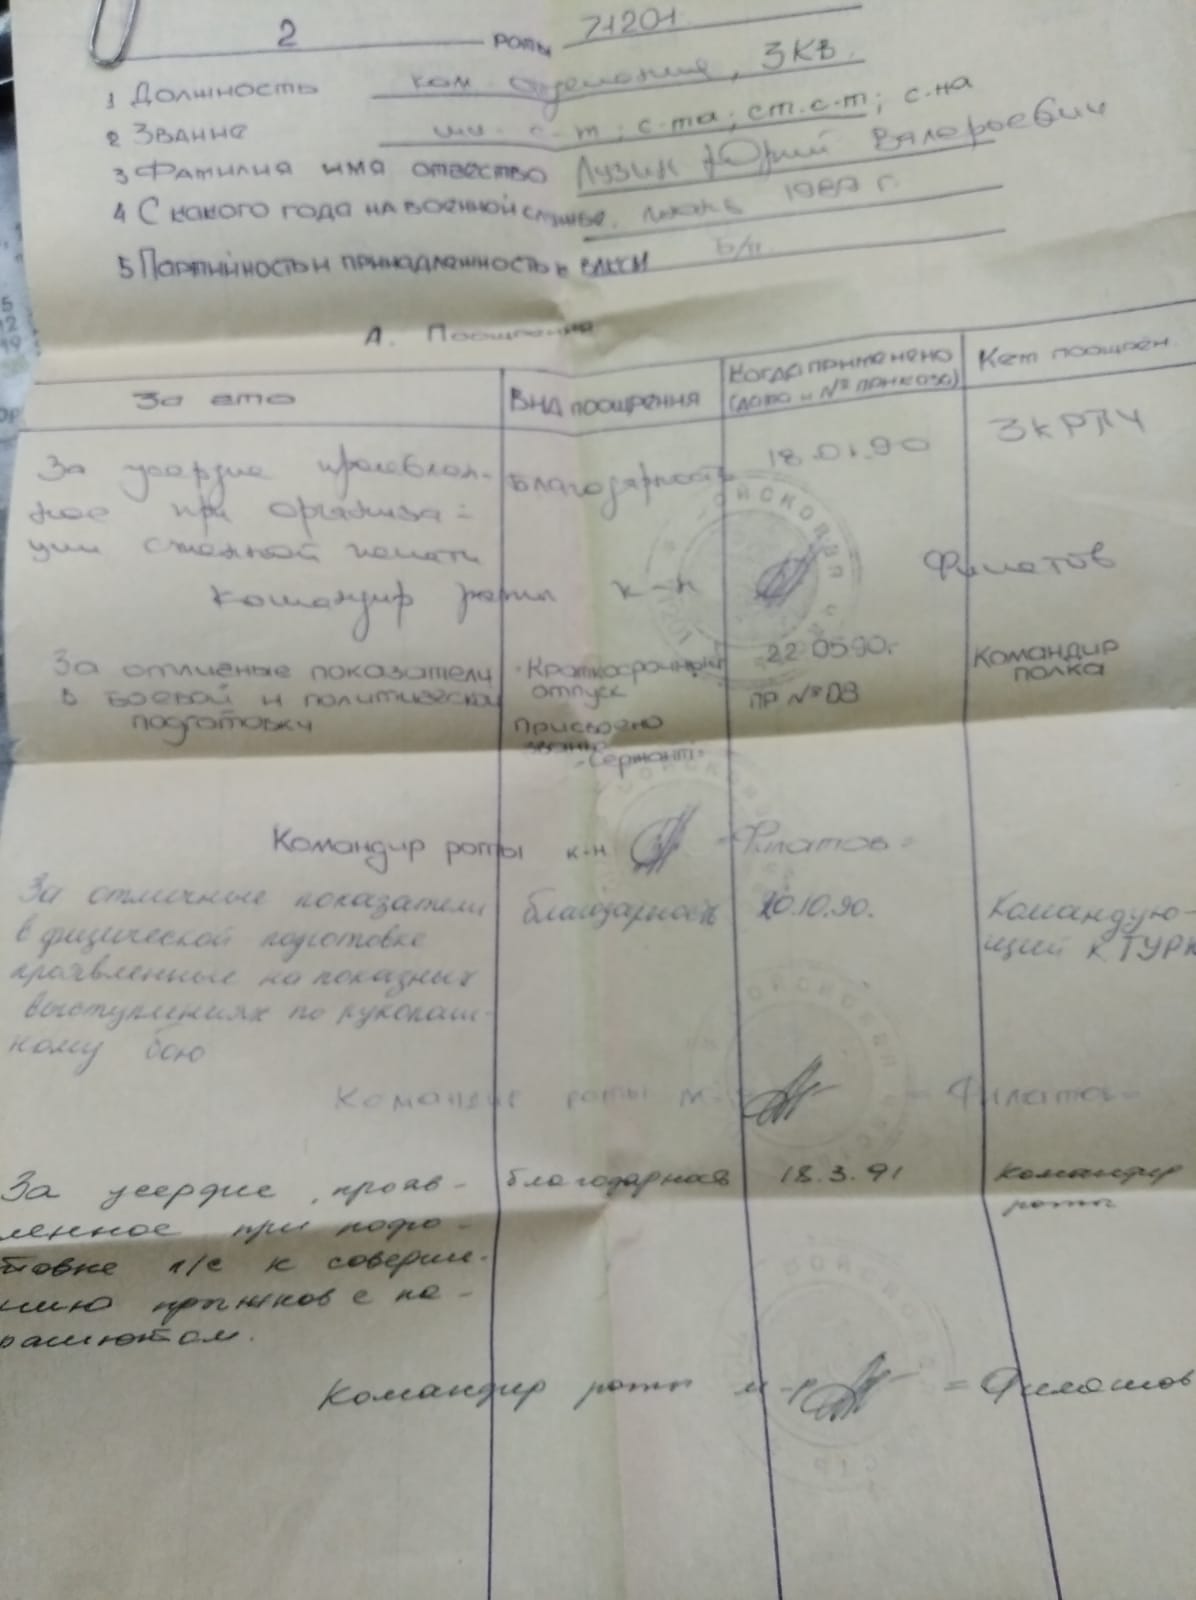 2 роты 71201
1 Должность ком. отделения, ЗКВ.
2 Звание мл. с-т; с-та; ст. с-т; с-на
3 Фамилия имя отчество Лузин Юрий Валерьевич
4 С какого года на военной службе. 1989 г.
5 Партийность и принадлежность к ВЛКСМ б/п.
А. Поощрения
За что Вид поощрения Когда применено (дата и № приказа) Кем поощрен.
За усердие проявлен- благодарность 18.01.90 ЗКРПЧ
ное при организа=
ции стенной печати
Командир роты к-н Филатов
За отличные показатели Краткосрочный 22.05.90г. Командир
в боевой и политической отпуск пр № 08 полка
подготовки присвоено
звание
"Сержант"
Командир роты к-н =Филатов=
За отличные показатели благодарность 20.10.90. Командую-
в физической подготовке щий КТУРК
проявленные на показных
выступлениях по рукопаш-
ному бою
Командир роты м-р =Филатов=
За усердие, прояв- благодарность 18.3.91 Командир
ленное при подго- роты
товке л/с к соверше-
нию прыжков с па-
рашютом.
Командир роты м-р =Филатов